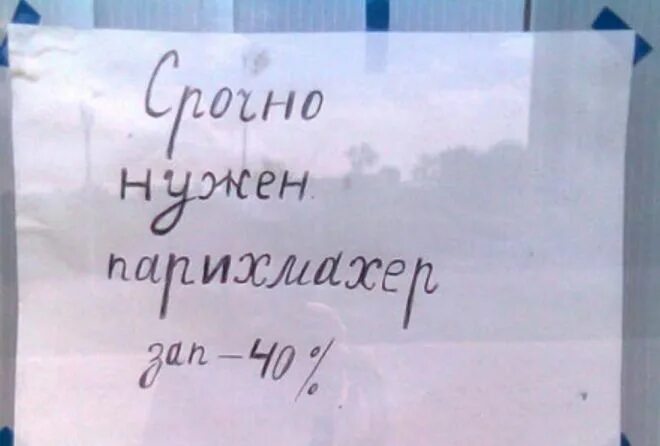 Срочно
нужен
парихмахер
зап – 40%